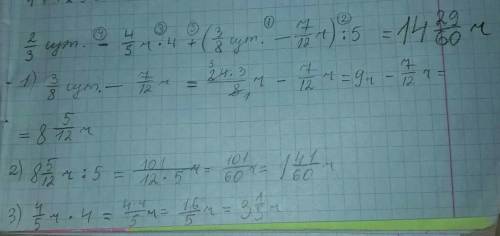 2/3 сут. ④ − 4/5 ч ③ · 4 ⑤ + (3/8 сут. ① − 7/12 ч) ② : 5 = 14 29/60 ч
1) 3/8 сут. − 7/12 ч = 24·3/8 ч − 7/12 ч = 9ч − 7/12 ч =
= 8 5/12 ч
2) 8 5/12 ч : 5 = 101/12·5 ч = 101/60 ч = 1 41/60 ч
3) 4/5 ч · 4 = 4·4/5 ч = 16/5 ч = 3 1/5 ч